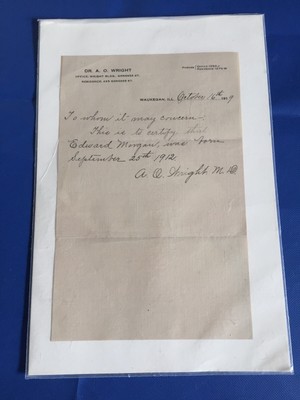 DR. A. O. WRIGHT
WAUKEGAN, ILL. October 16th
To whom it may concern:
This is to certify that
Edward Morgan, was born
September 25th 1912.
A. O. Wright M. D.